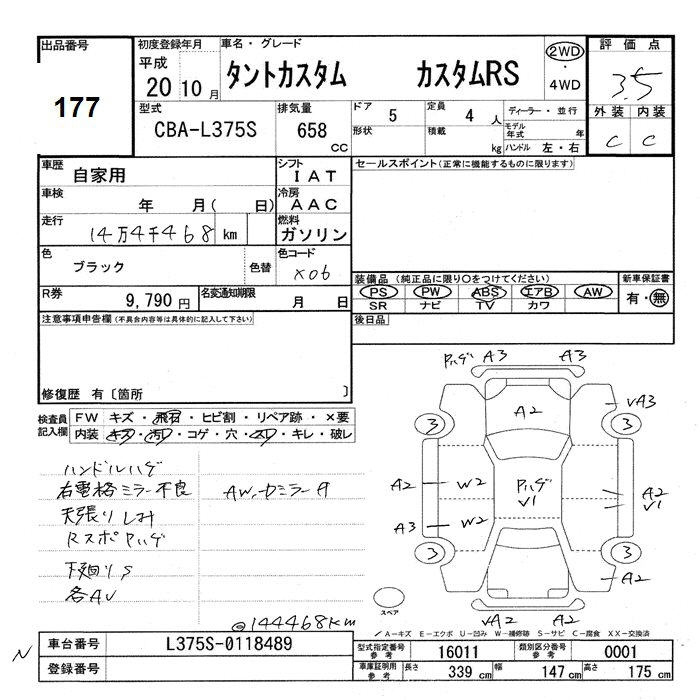 出品番号
177
初度登録年月
平成
20 10 月
車名・グレード
タントカスタム カスタムRS
2WD
・
4WD
評価点
3.5
外装 内装
C C
型式
CBA-L375S
排気量
658
CC
ドア 5
形状
定員 4 人
積載 kg
ディーラー・並行
モデル年式 年
ハンドル 左・右
車歴 自家用
シフト
IAT
車検 年 月( 日)
冷房
AAC
走行 14万4千468 km
燃料
ガソリン
色 ブラック 色替
色コード
X06
R券 9,790 円
名変通知期限 月 日
セールスポイント(正常に機能するものに限ります)
装備品(純正品に限り○をつけてください)
PS PW ABS エアB AW
SR ナビ TV カワ
新車保証書
有・無
後日品
注意事項申告欄(不具合内容等は具体的に記入して下さい)
修復歴 有〔箇所 〕
検査員
記入欄
FW キズ・飛石・ヒビ割・リペア跡・×要
内装 キズ・汚レ・コゲ・穴・スレ・キレ・破レ
ハンドルハゲ
右電格ミラー不良
AW、
天張りしみ
RスポPハゲ
下廻りS
各AU
@144468km
Pハゲ A3 A3
A2
VA3
3 3
A2 W2
Pハゲ
V1
A2
V1
A3 W2
3 3
A2
VA2 A2
スペア
A-キズ E-エクボ U-凹み W-補修跡 S-サビ C-腐食 XX-交換済
N
車台番号 L375S-0118489
登録番号
型式指定番号
参考
16011
類別区分番号
参考
0001
車庫証明用
参考
長さ 339 cm 幅 147 cm 高さ 175 cm